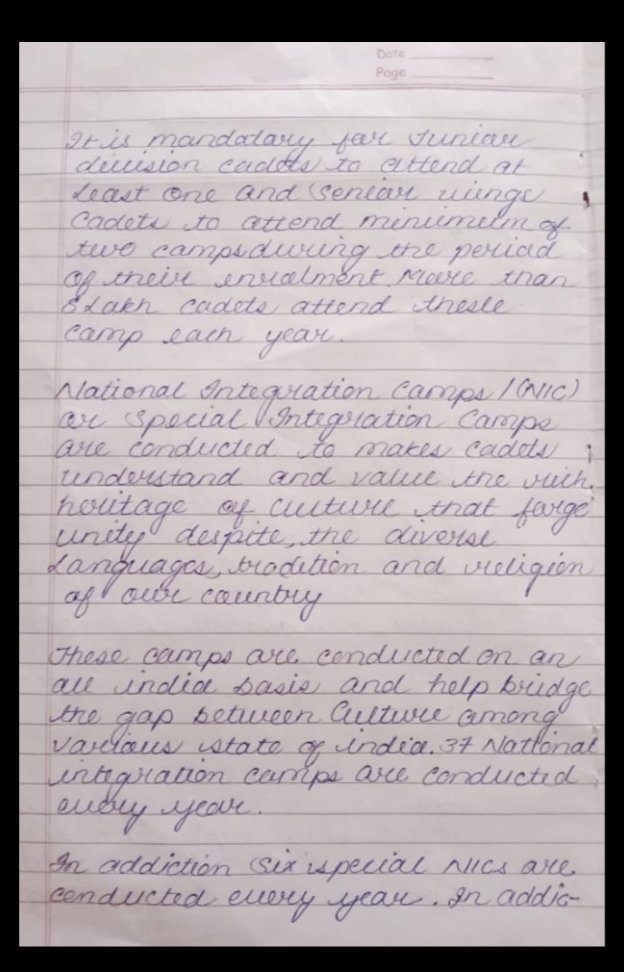 Date
Page
It is mandatary for Junior
division cadets to attend at
Least one and Senior winge
Cadets to attend minimum of
two camps during the period
of their enrolment. More than
8 Lakh cadets attend these
camp each year.
National Integration Camps / (NIC)
or Special Integration Camps
are conducted to makes cadets
understand and value the rich
heritage of culture that forge
unity despite, the diverse
Languages, tradition and religion
of our country
These camps are conducted on an
all india basis and help bridge
the gap between Culture among
various state of india. 37 National
integration camps are conducted
every year.
In addiction six special NICs are
conducted every year. In addic-